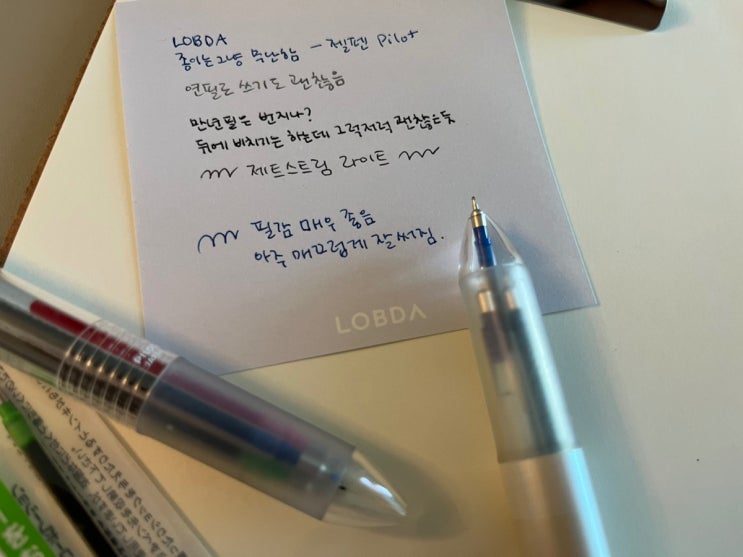 LOBDA
종이는 그냥 무난함 – 젤펜 Pilot
연필로 쓰기도 괜찮음
만년필은 번지나?
뒤에 비치기는 하는데 그럭저럭 괜찮은듯
제트스트림 라이트
필감 매우 좋음
아주 매끄럽게 잘써짐.
LOBDA